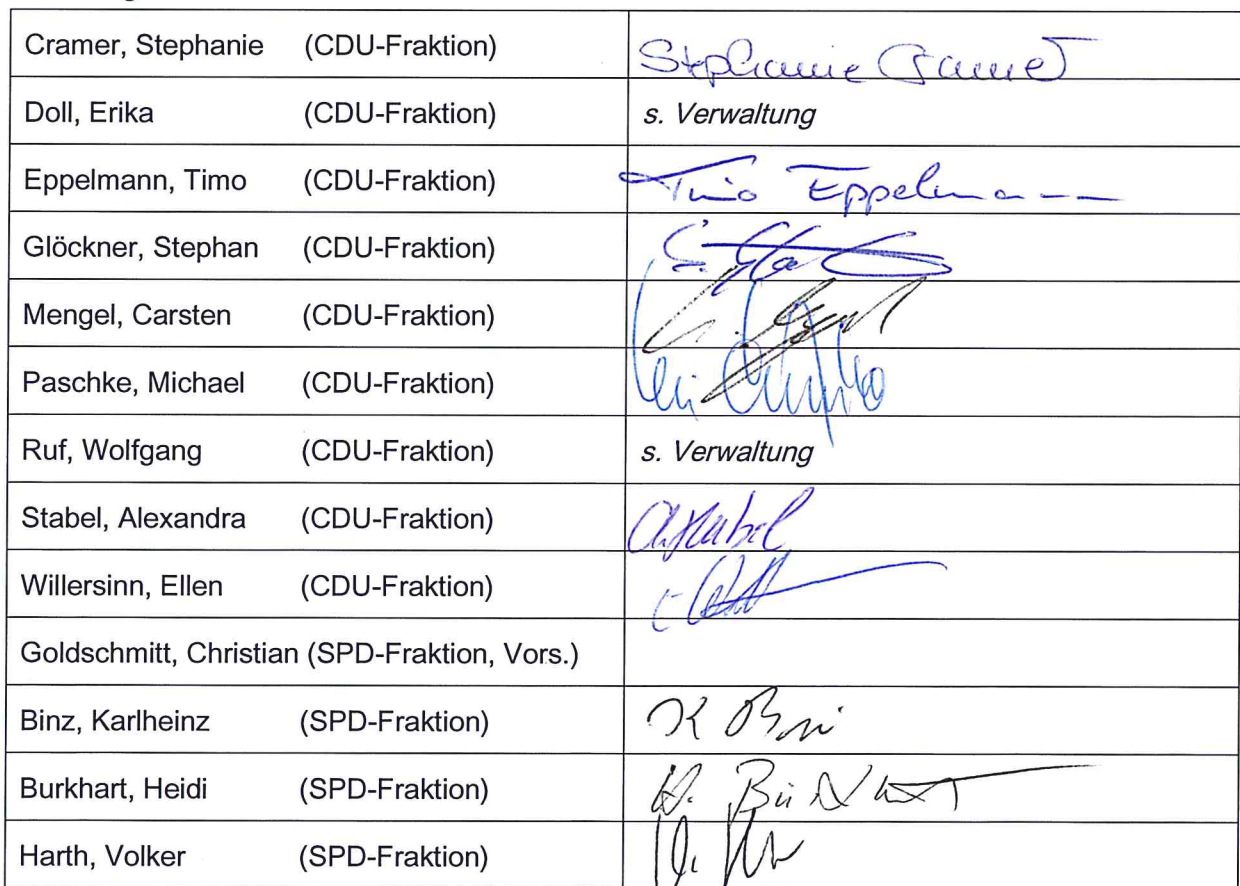 Cramer, Stephanie (CDU-Fraktion) Stephanie Cramer
Doll, Erika (CDU-Fraktion) s. Verwaltung
Eppelmann, Timo (CDU-Fraktion) Timo Eppelmann
Glöckner, Stephan (CDU-Fraktion)
Mengel, Carsten (CDU-Fraktion)
Paschke, Michael (CDU-Fraktion)
Ruf, Wolfgang (CDU-Fraktion) s. Verwaltung
Stabel, Alexandra (CDU-Fraktion)
Willersinn, Ellen (CDU-Fraktion)
Goldschmitt, Christian (SPD-Fraktion, Vors.)
Binz, Karlheinz (SPD-Fraktion)
Burkhart, Heidi (SPD-Fraktion) H. Burkhart
Harth, Volker (SPD-Fraktion)